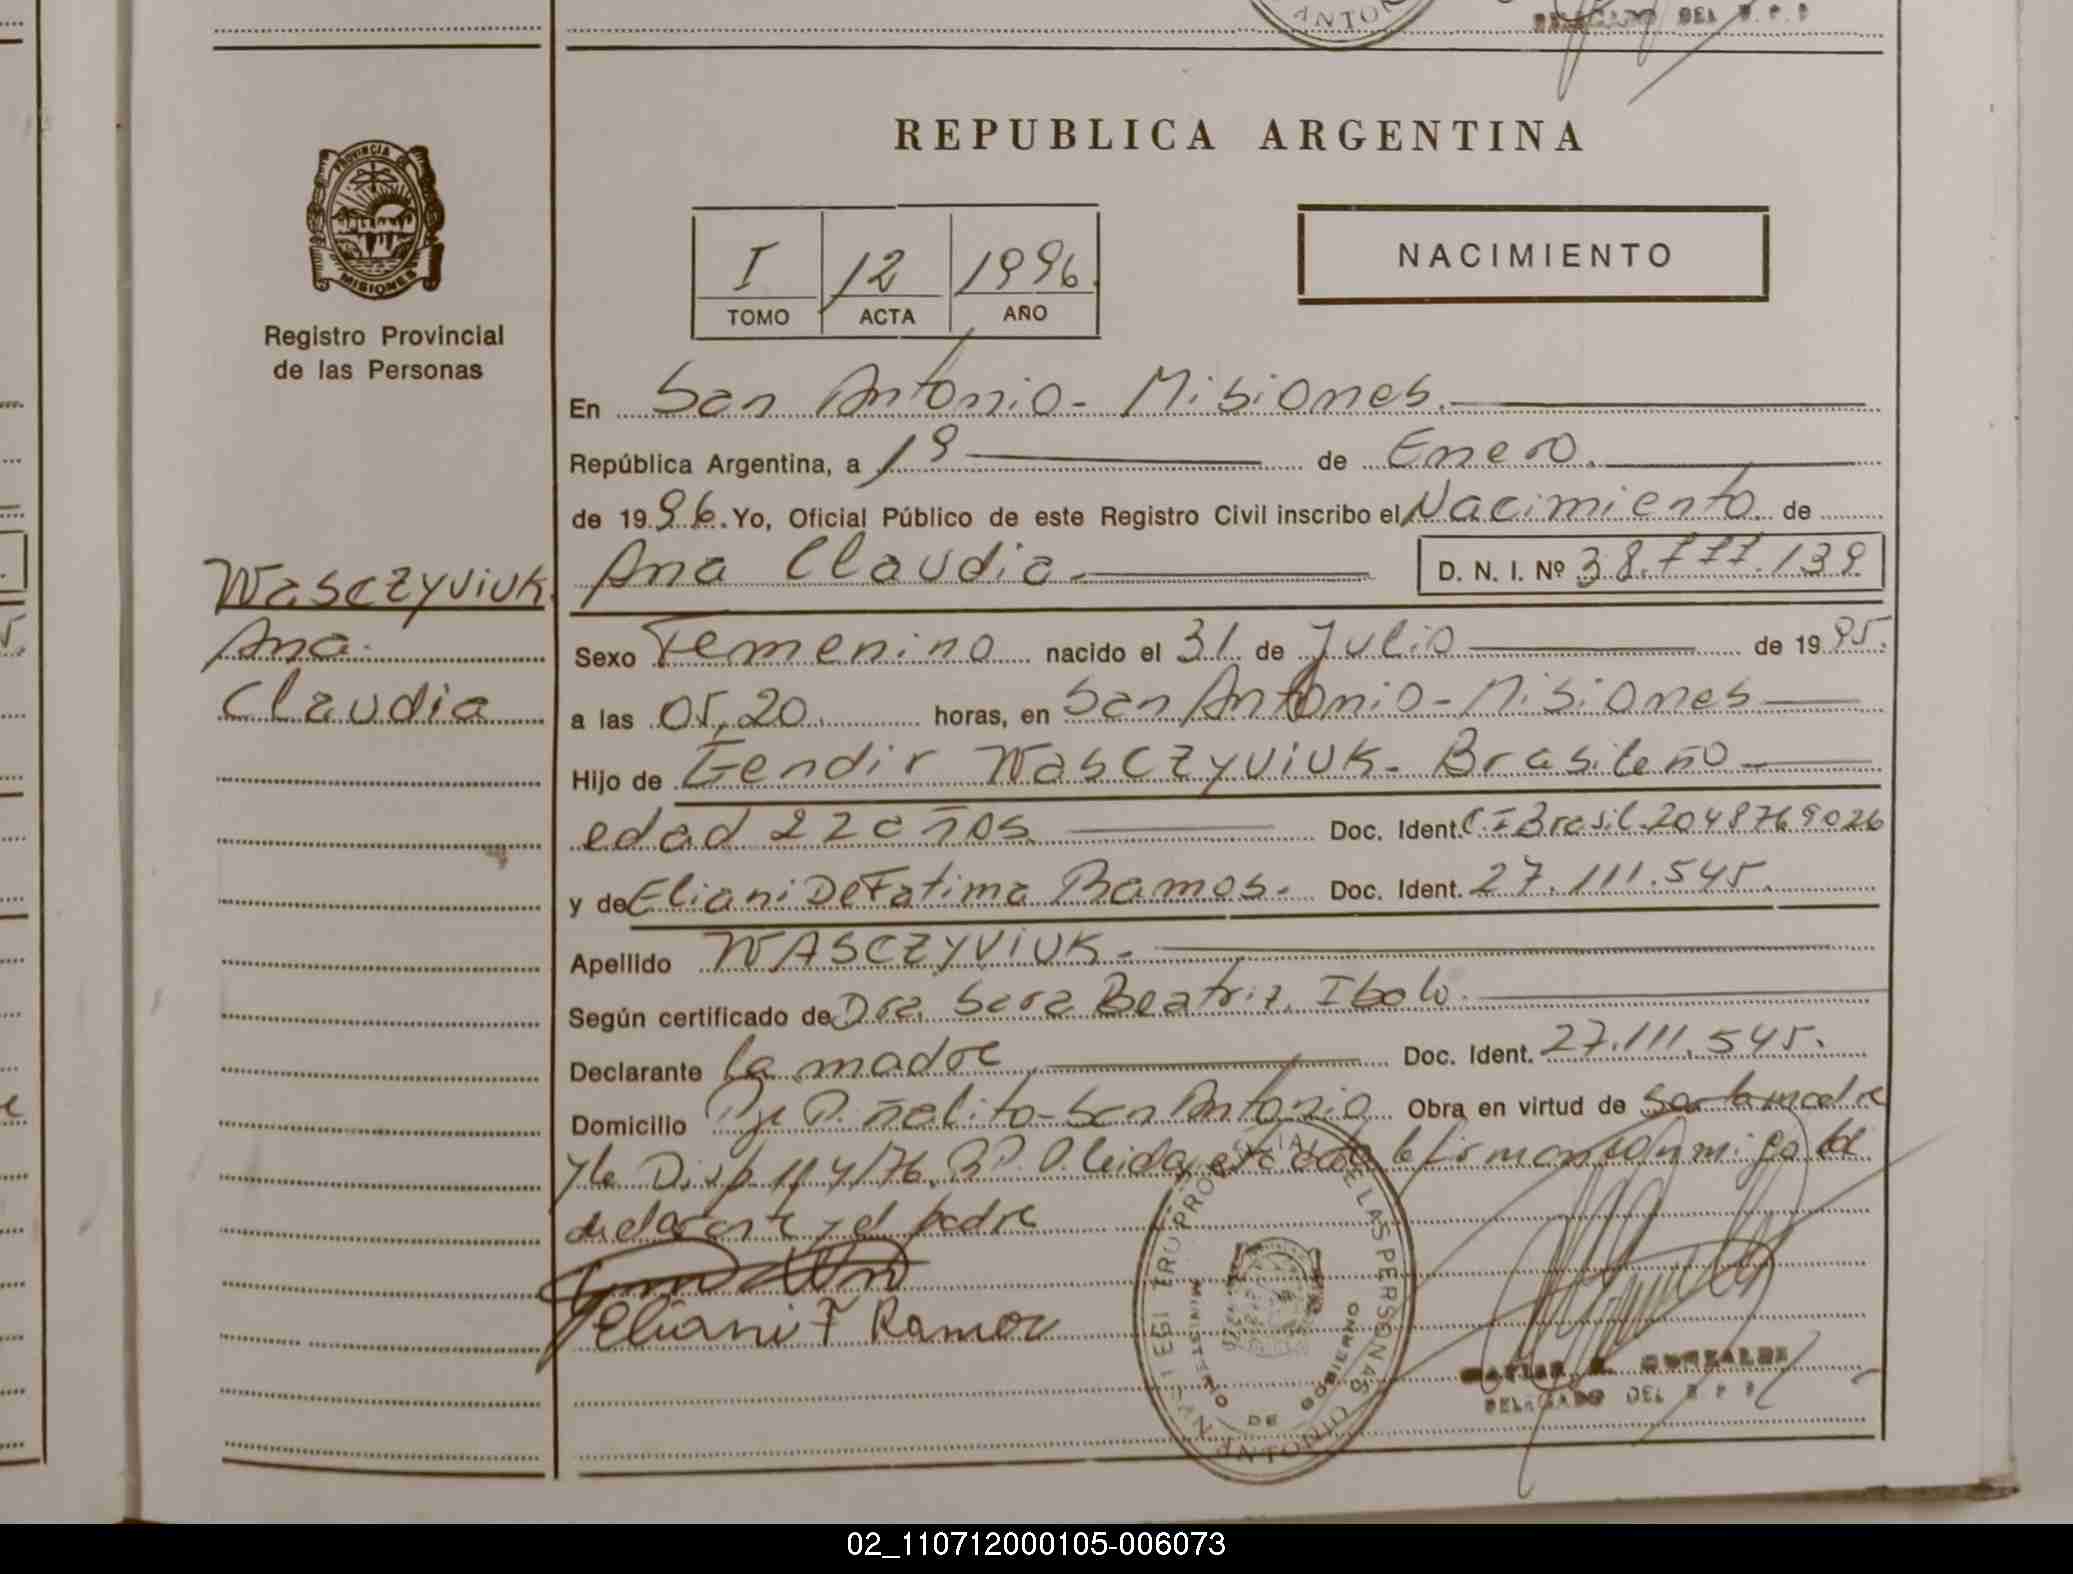 ANTO
DELEGADO DEL R. P. P
REPUBLICA ARGENTINA
PROVINCIA DE
MISIONES
Registro Provincial
de las Personas
I 12 1996.
TOMO ACTA AÑO
NACIMIENTO
En San Antonio - Misiones.
República Argentina, a 19 de Enero.
de 1996. Yo, Oficial Público de este Registro Civil inscribo el Nacimiento de
Wasczyviuk. Ana Claudia. D. N. I. Nº 38.777.139
Ana. Sexo Femenino nacido el 31 de Julio de 1995.
Claudia a las 05,20 horas, en San Antonio - Misiones
Hijo de Wasczyviuk - Brasileño
edad 22 años Doc. Ident. C.I Brasil. 2048769026
y de Eliani De Fatima Ramos. Doc. Ident. 27.111.545.
Apellido WASCZYVIUK.
Según certificado de Dra. Sara Beatriz
Declarante la madre Doc. Ident. 27.111.545.
Domicilio Piñalito - San Antonio Obra en virtud de ser la madre
y la Disp. 114/76. R.P.P. Leida esta acta la firman conmigo la
declarante y el padre
Eliani F Ramos
REGISTRO PROVINCIAL DE LAS PERSONAS
MINISTERIO DE GOBIERNO
SAN ANTONIO
GONZALEZ
DELEGADO DEL R P P
02_110712000105-006073